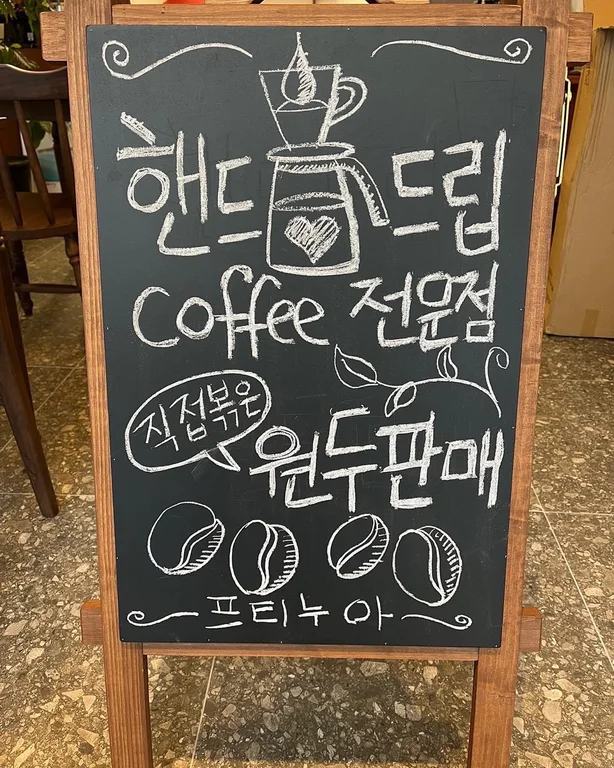 핸드 드립
coffee 전문점
직접볶은
원두판매
프티누아